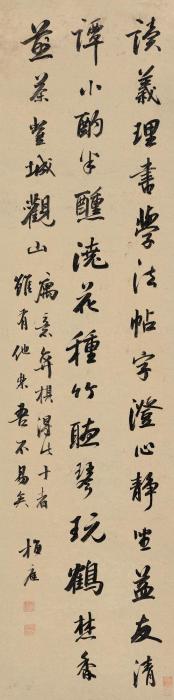 讀義理書學法帖字澄心靜坐益友清
譚小酌半醺澆花種竹聽琴玩鶴焚香
煎茶登城觀山
寓意弈棋得此十者
雖有他樂吾不易矣
梅庵